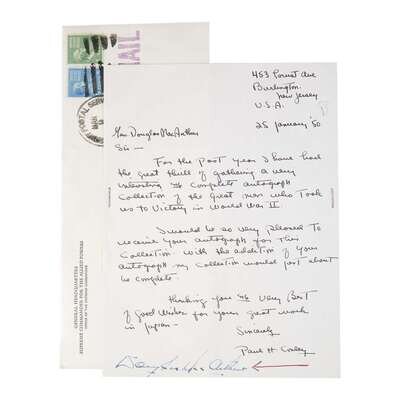 MAIL
POSTAL SERVICE
453 Locust Ave
Burlington
New Jersey
U.S.A.
25 January '50
Gen. Douglas MacArthur
Sir —
For the Past Year I have had
the great thrill of gathering a very
interesting & complete autograph
Collection of the great men who Took
us To Victory in World War II.
I would be so very pleased To
receive your autograph for This
Collection - with the addition of your
autograph my Collection would just about
be complete.
Thanking you & Very Best
of Good Wishes for your great work
in Japan -
Sincerely
Paul H Conley
Douglas MacArthur
GENERAL HEADQUARTERS
SUPREME COMMANDER FOR THE ALLIED POWERS
OFFICE OF THE SUPREME COMMANDER